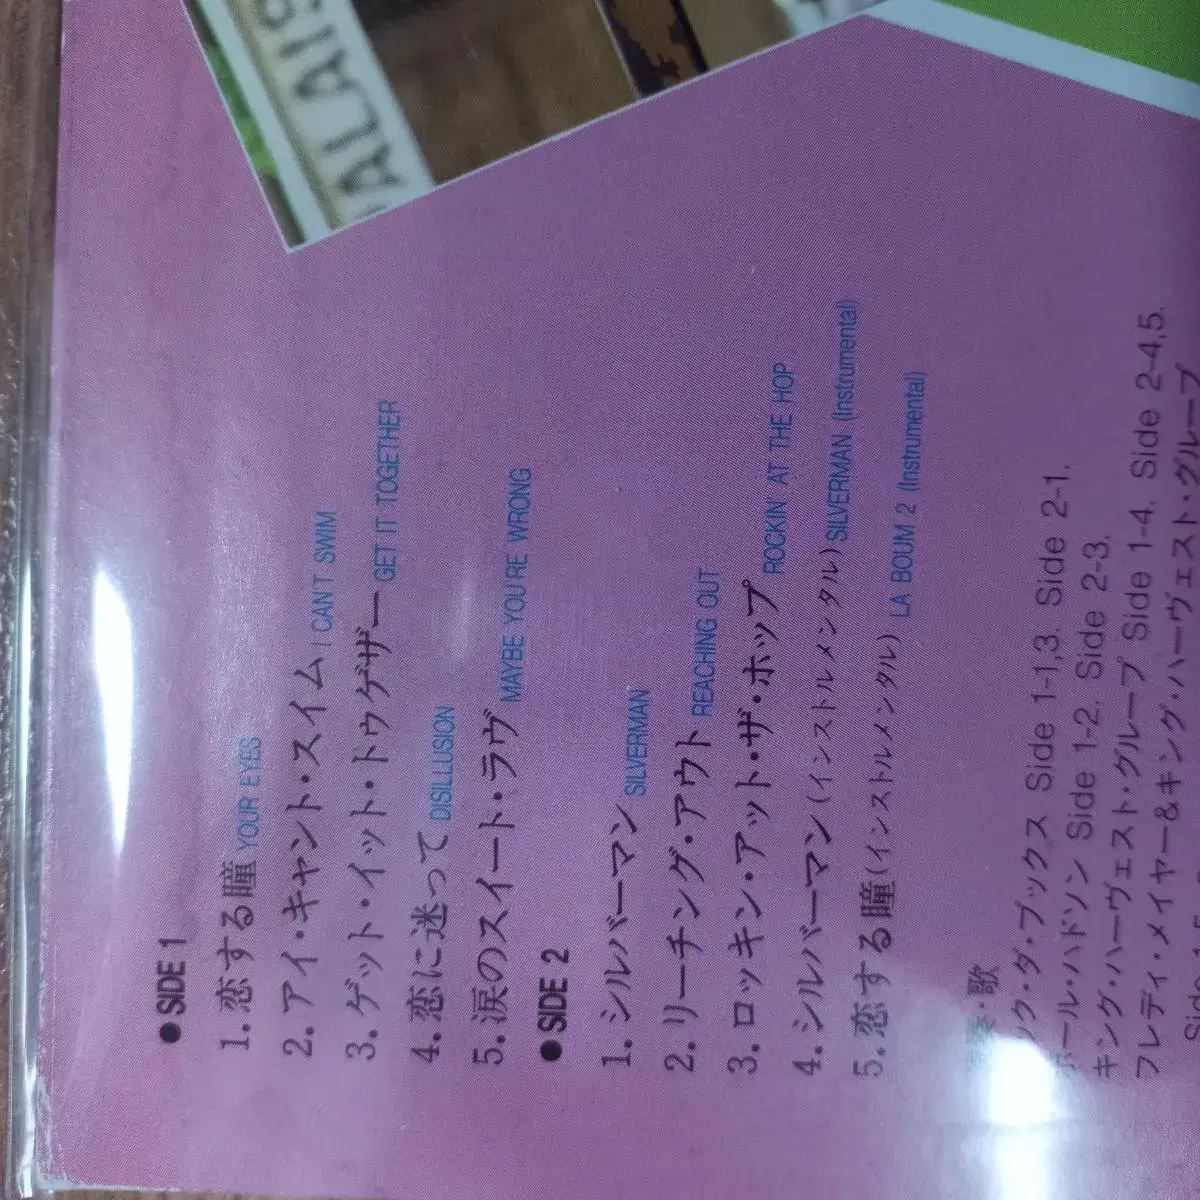 PALAIS
● SIDE 1
1. 恋する瞳 YOUR EYES
2. アイ・キャント・スイム I CAN'T SWIM
3. ゲット・イット・トゥゲザー GET IT TOGETHER
4. 恋に迷って DISILLUSION
5. 涙のスイート・ラヴ MAYBE YOU'RE WRONG
● SIDE 2
1. シルバーマン SILVERMAN
2. リーチング・アウト REACHING OUT
3. ロッキン・アット・ザ・ホップ ROCKIN' AT THE HOP
4. シルバーマン(インストルメンタル) SILVERMAN (Instrumental)
5. 恋する瞳(インストルメンタル) LA BOUM 2 (Instrumental)
演奏・歌
ック・ダ・ブックス Side 1-1,3. Side 2-1.
ポール・ハドソン Side 1-2. Side 2-3.
キング・ハーヴェスト・グループ Side 1-4. Side 2-4,5.
フレディ・メイヤー&キング・ハーヴェスト・グループ
Side